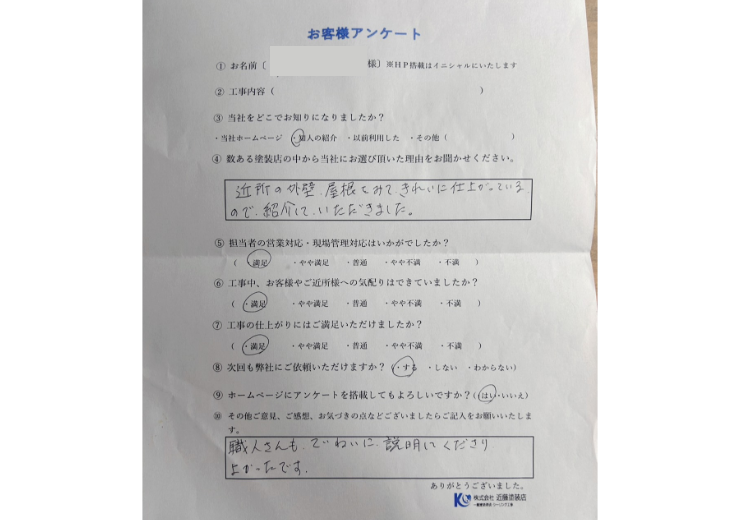 お客様アンケート
① お名前〔 様〕※HP搭載はイニシャルにいたします
② 工事内容（ ）
③ 当社をどこでお知りになりましたか？
・当社ホームページ ・知人の紹介 ・以前利用した ・その他（ ）
④ 数ある塗装店の中から当社にお選び頂いた理由をお聞かせください。
近所の外壁、屋根をみて、きれいに仕上がっている
ので、紹介して、いただきました。
⑤ 担当者の営業対応・現場管理対応はいかがでしたか？
（ ・満足 ・やや満足 ・普通 ・やや不満 ・不満 ）
⑥ 工事中、お客様やご近所様への気配りはできていましたか？
（ ・満足 ・やや満足 ・普通 ・やや不満 ・不満 ）
⑦ 工事の仕上がりにはご満足いただけましたか？
（ ・満足 ・やや満足 ・普通 ・やや不満 ・不満 ）
⑧ 次回も弊社にご依頼いただけますか？（・する ・しない ・わからない）
⑨ ホームページにアンケートを搭載してもよろしいですか？（はい・いいえ）
⑩ その他ご意見、ご感想、お気づきの点などございましたらご記入をお願いいたしま
す。
職人さんも、ていねいに、説明してくださり
よかったです。
ありがとうございました。
株式会社 近藤塗装店